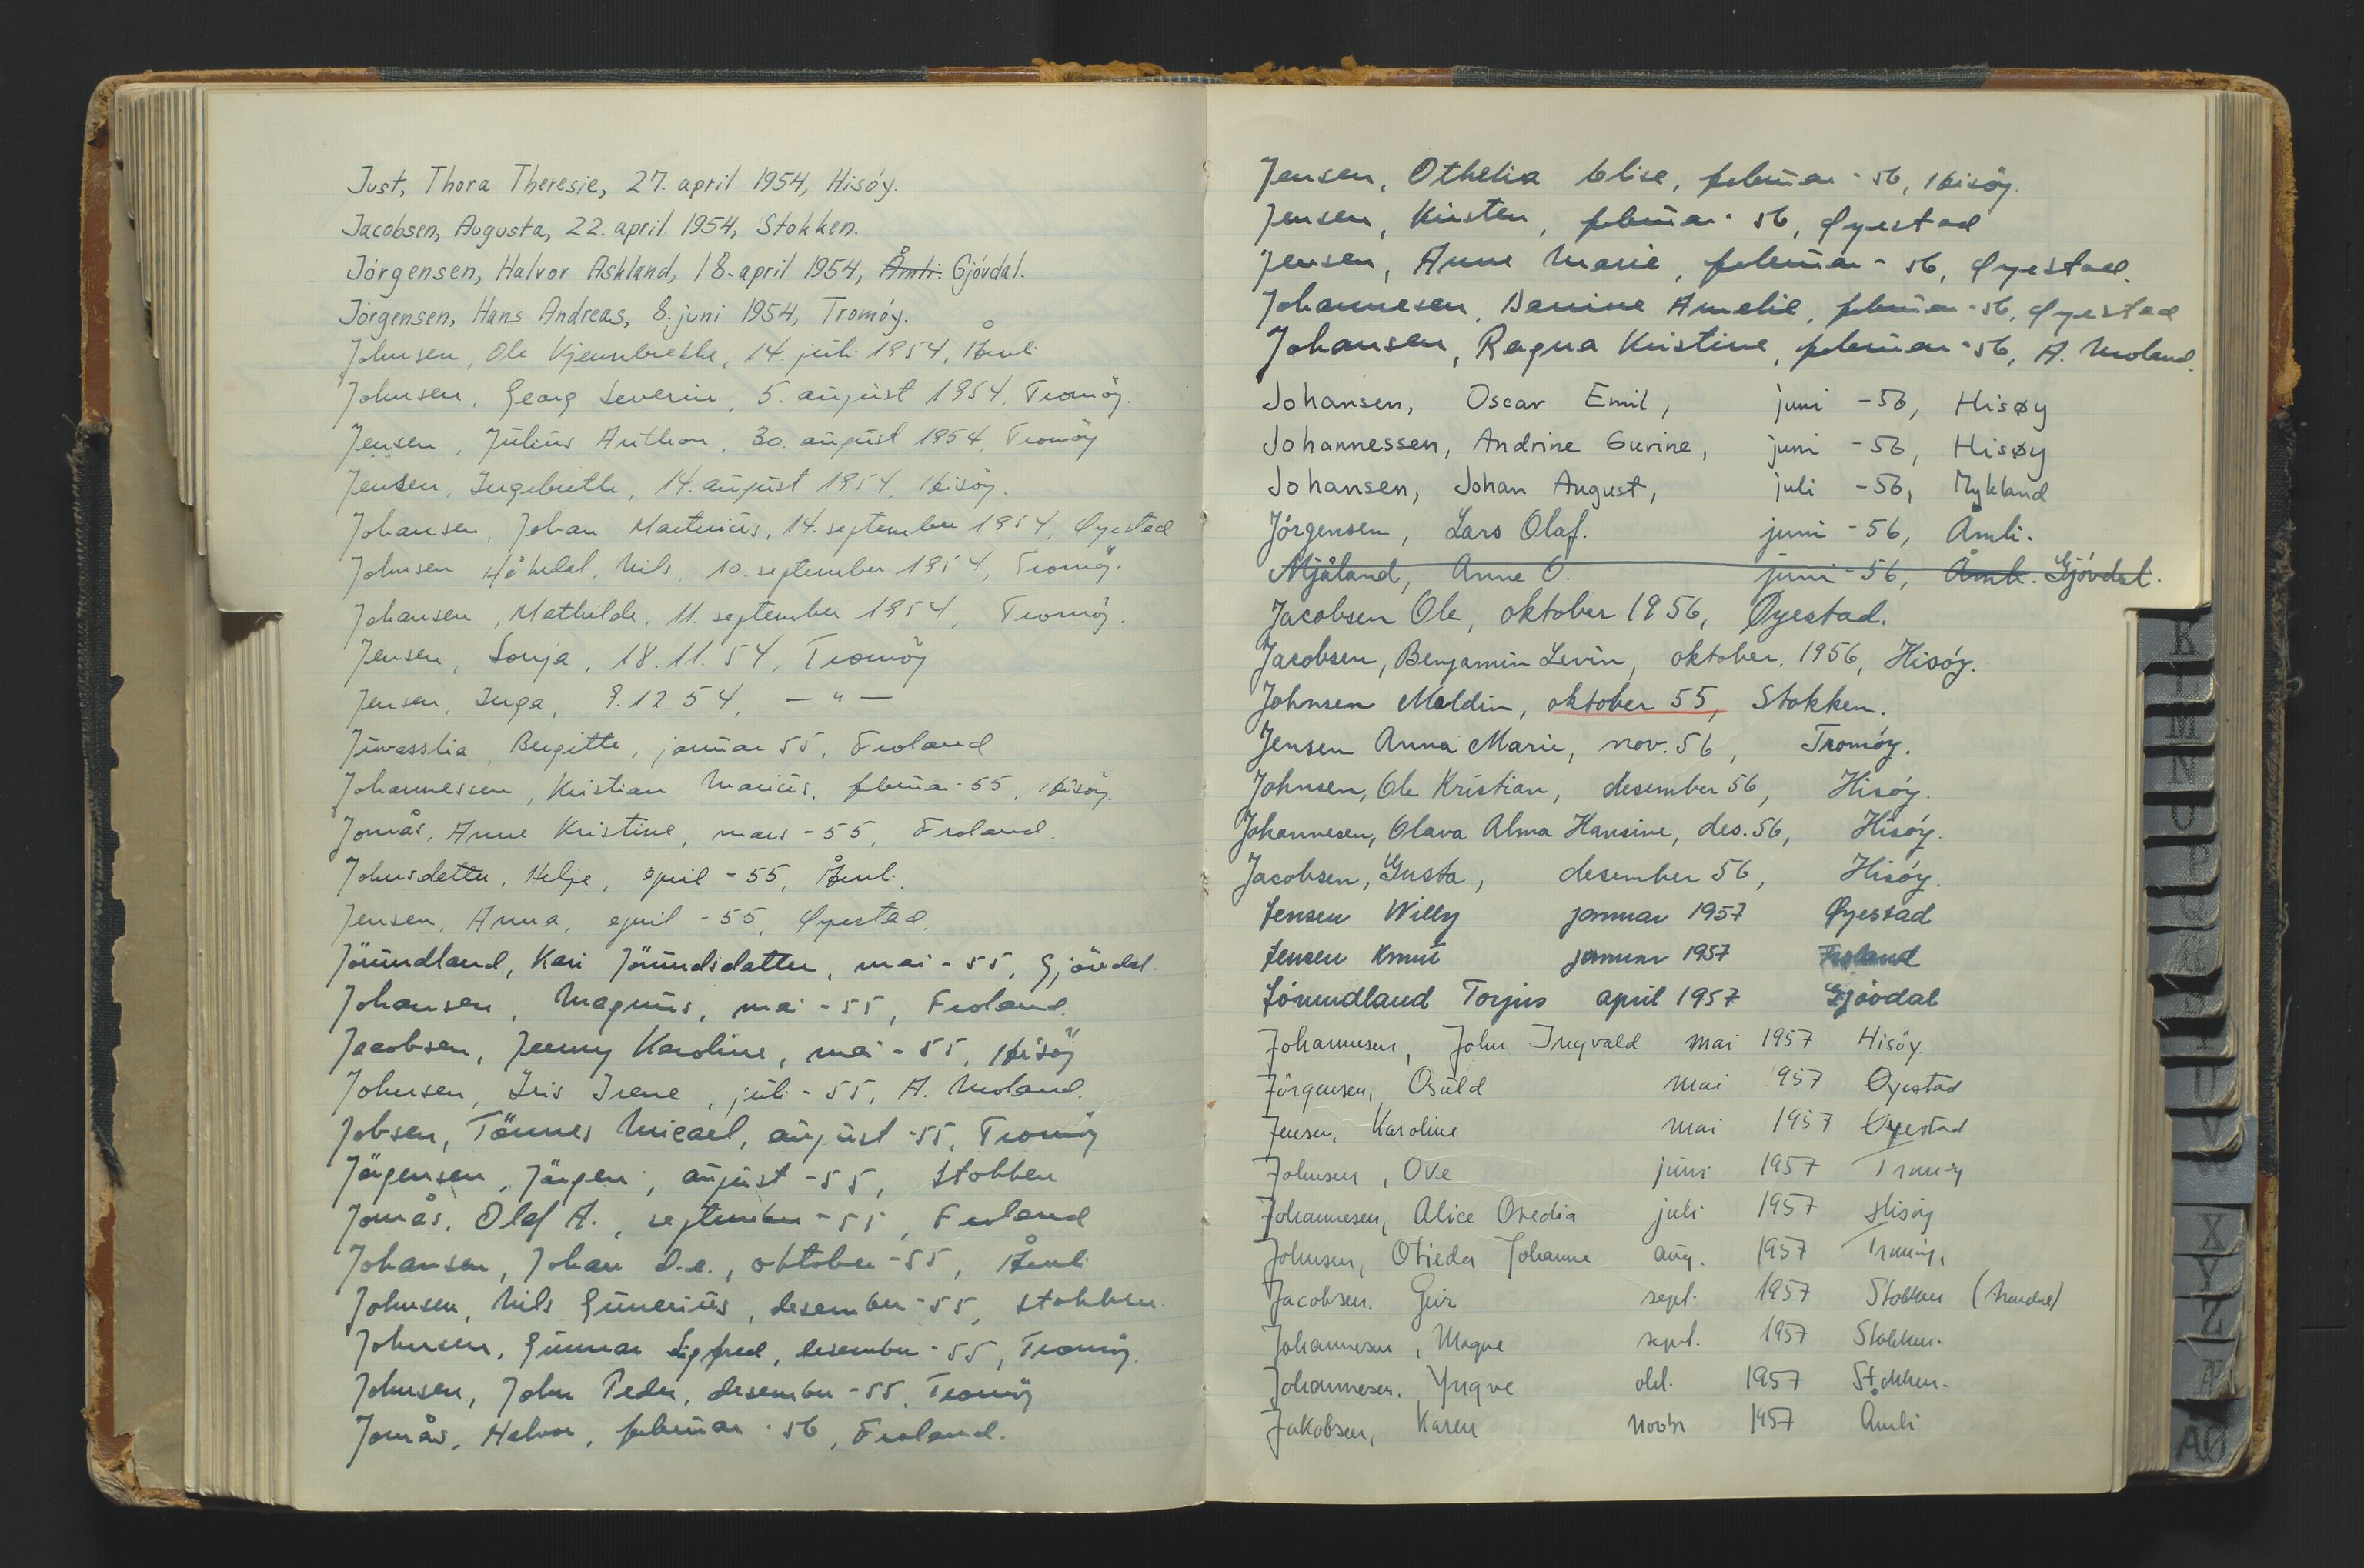 Just, Thora Theresie, 27. april 1954, Hisóy.
Jacobsen, Augusta, 22. april 1954, Stokken.
Jórgensen, Halvor Askland, 18. april 1954, Åmli. Gjóvdal.
Jórgensen, Hans Andreas, 8. juni 1954, Tromóy.
Johnsen, Ole Kjennbrekke, 14. juli 1954, Åmli
Johnsen, Georg Severin, 5. august 1954, Tromöy.
Jensen, Julius Anthon, 30. august 1954, Tromöy
Jensen, Ingebreth, 14. august 1954, Hisöy.
Johansen, Johan Martinius, 14. september 1954, Øyestad
Johnsen Håkedal, Nils, 10. september 1954, Tromöy.
Johansen, Mathilde, 11. september 1954, Tromöy.
Jensen, Sonja, 18.11.54, Tromöy
Jensen, Inga, 9.12.54, — " —
Juvasslia, Bergitte, januar 55, Froland
Johannessen, Kristian Marius, februar-55, Hisöy.
Jomås, Anne Kristine, mars-55, Froland.
Johnsdatter, Helje, april-55, Åmli.
Jensen, Anna, april-55, Øyestad.
Jörundland, Kari Jörundsdatter, mai-55, Gjövdal.
Johansen, Magnus, mai-55, Froland.
Jacobsen, Jenny Karoline, mai-55, Hisöy
Johnsen, Iris Irene, juli-55, A. Moland.
Jobsen, Tönnes Micael, august-55, Tromöy
Jörgensen, Jörgen, august-55, Stokken
Jomås, Olaf A., september-55, Froland
Johansen, Johan d.e., oktober-55, Åmli
Johnsen, Nils Gunerius, desember-55, Stokken.
Johnsen, Gunnar Sigfred, desember-55, Tromöy.
Johnsen, John Peder, desember-55, Tromöy
Jomås, Halvor, februar-56, Froland.
Jensen, Othelia Elise, februar-56, Hisöy.
Jensen, Kirsten, februar-56, Øyestad
Jensen, Anne Marie, februar-56, Øyestad.
Johannesen, Danine Amelie, februar-56, Øyestad
Johansen, Ragna Kristine, februar-56, A. Moland.
Johansen, Oscar Emil, juni -56, Hisøy
Johannessen, Andrine Gurine, juni -56, Hisøy
Johansen, Johan August, juli -56, Mykland
Jórgensen, Lars Olaf. juni -56, Åmli.
Mjåland, Anne O. juni -56, Åmli. Gjóvdal.
Jacobsen Ole, oktober 1956, Øyestad.
Jacobsen, Benjamin Levin, oktober. 1956, Hisóy.
Johnsen Maldin, oktober 55, Stokken.
Jensen Anna Marie, nov. 56, Tromóy.
Johnsen, Ole Kristian, desember 56, Hisóy.
Johannesen, Olava Alma Hansine, des. 56, Hisóy.
Jacobsen, Gusta, desember 56, Hisóy.
Jensen Willy januar 1957 Øyestad
Jensen Knut januar 1957 Froland
Jórundland Torjus april 1957 Gjóvdal
Johannesen, John Ingvald mai 1957 Hisöy.
Jörgensen, Osuld mai 1957 Øyestad
Jensen, Karoline mai 1957 Øyestad
Johnsen, Ove juni 1957 Tromöy
Johannesen, Alice Ovedia juli 1957 Hisöy
Johnsen, Otieda Johanne aug. 1957 Tromöy.
Jacobsen. Geir sept. 1957 Stokken
Johannesen, Magne sept. 1957 Stokken.
Johannesen. Yngve okt. 1957 Stokken.
Jakobsen, Karen novbr 1957 Åmli
K
L
M
N
O
P
Q
R
S
T
U
V
X
Y
Z
Æ
AØ